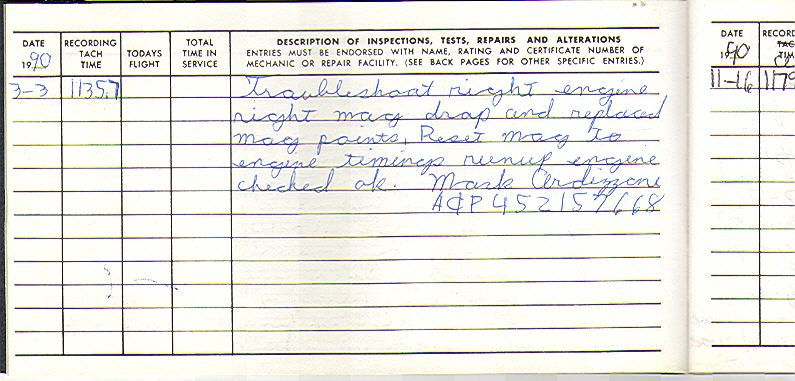 DATE
1990
RECORDING
TACH
TIME
TODAYS
FLIGHT
TOTAL
TIME IN
SERVICE
DESCRIPTION OF INSPECTIONS, TESTS, REPAIRS AND ALTERATIONS
ENTRIES MUST BE ENDORSED WITH NAME, RATING AND CERTIFICATE NUMBER OF
MECHANIC OR REPAIR FACILITY. (SEE BACK PAGES FOR OTHER SPECIFIC ENTRIES.)
3-3 1135.7 Troubleshoot right engine
right mag drop and replaced
mag points, Reset mag to
engine timings runup engine
checked ok. Mark Ardizzone
A&P 452157668
DATE
1990
RECORD
TAC
TIM
11-16 117